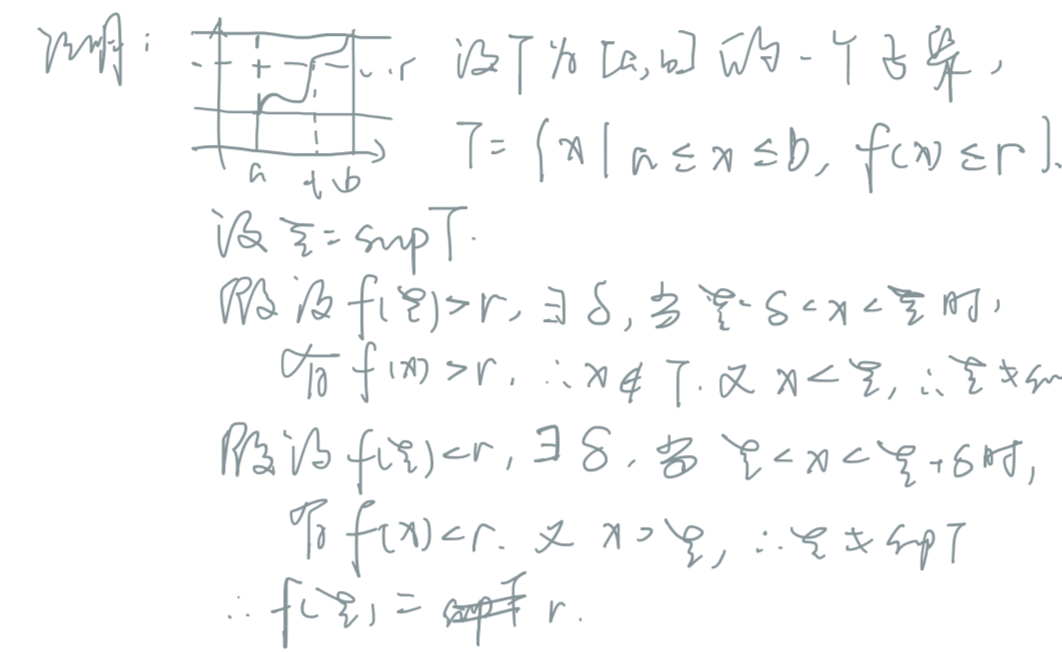 证明:
r
a t b
设T为[a,b]的一个子集,
T={x|a≤x≤b, f(x)≤r}.
设ξ=supT.
假设f(ξ)>r, ∃δ, 当ξ-δ<x<ξ时,
有f(x)>r. ∴x∉T. 又x<ξ, ∴ξ≠su
假设f(ξ)<r, ∃δ, 当ξ<x<ξ+δ时,
有f(x)<r. 又x>ξ, ∴ξ≠supT
∴f(ξ)= r.